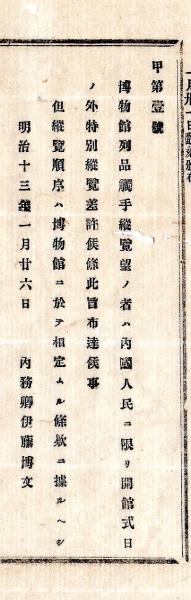 甲第壹號
博物館列品觸手縱覽望ノ者ハ內國人民ニ限リ開館式日
ノ外特別縱覽差許候條此旨布達候事
但縱覽順序ハ博物館ニ於テ相定ムル條欵ニ據ルヘシ
明治十三年一月廿六日 內務卿伊藤博文